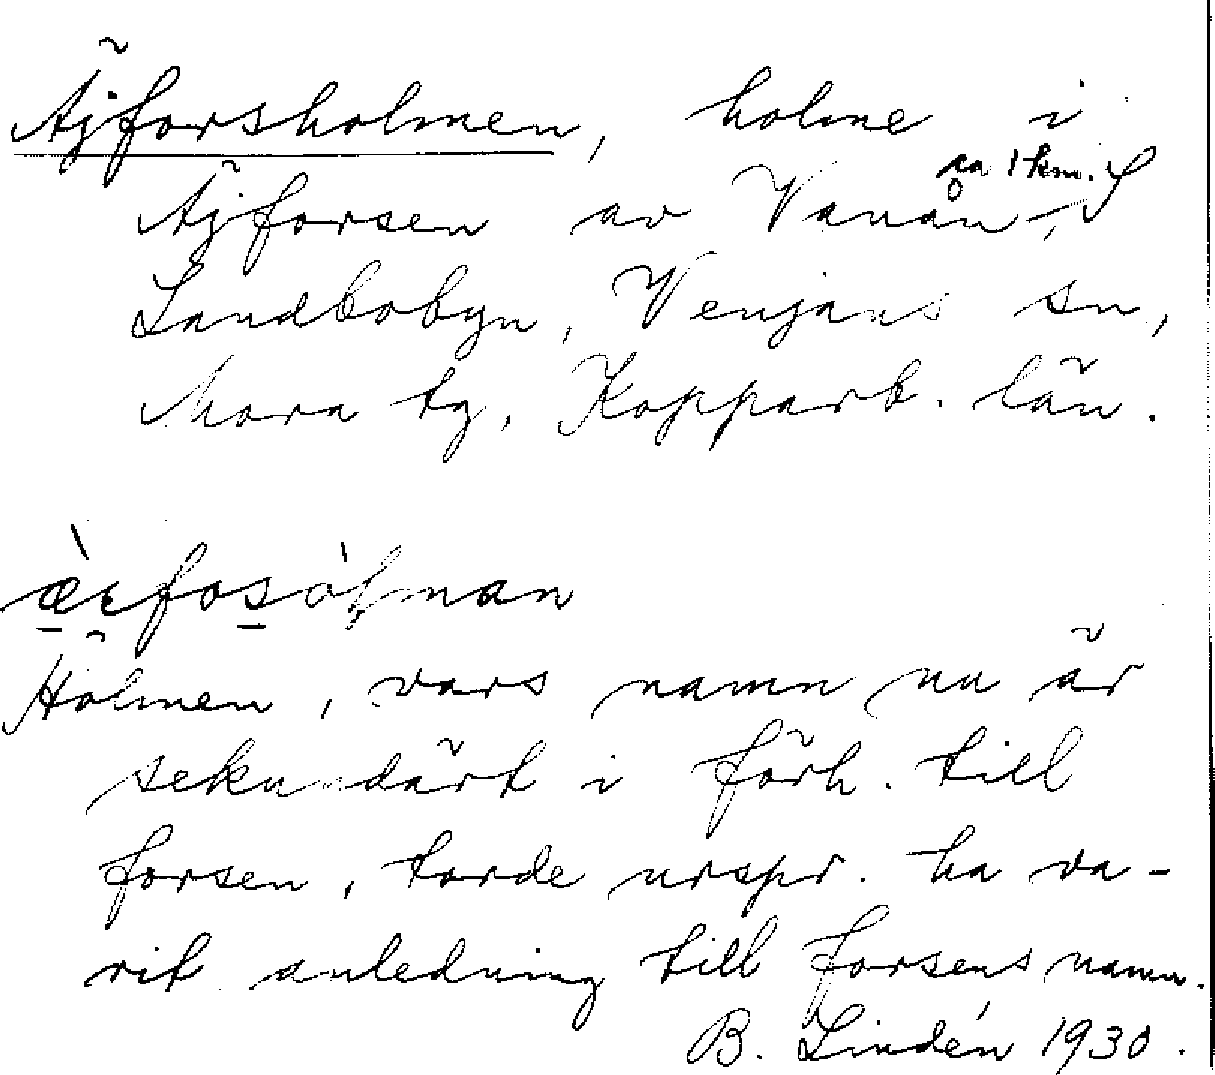 Äjforsholmen, holme i
Äjforsen av Vanån, ca 1 km. S
Landbobyn, Venjans sn,
Mora tg, Kopparb. län.
Holmen, vars namn nu är
sekundärt i förh. till
forsen, torde urspr. ha va-
rit anledning till forsens namn.
B. Lindén 1930.